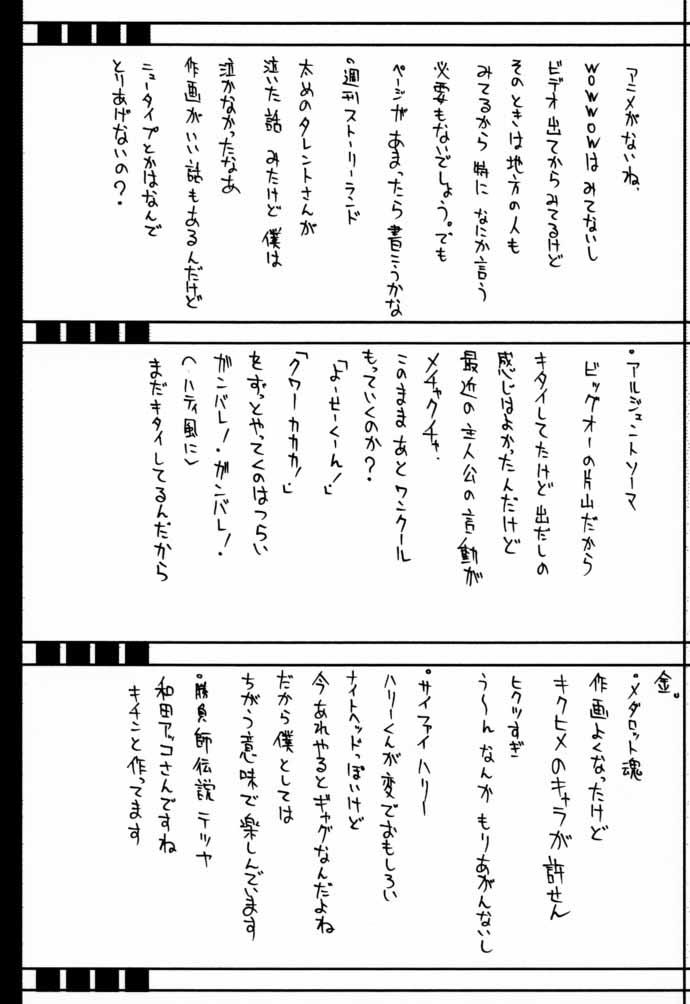 アニメがないね、
WOWWOWは みてないし
ビデオ 出てからみてるけど
そのときは地方の人も
みてるから 特に なにか言う
必要もないでしょう。でも
ページが あまったら 書こうかな
°週刊ストーリーランド
太めのタレントさんが
泣いた話 みたけど 僕は
泣かなかったなあ
作画がいい話もあるんだけど
ニュータイプとかはなんで
とりあげないの？・
°アルジェントソーマ
ビッグオーの片山だから
キタイしてたけど 出だしの
感じはよかったんだけど
最近の主人公の言動が
メチャクチャ.
このまま あと ワンクール
もっていくのか？・
「よーせーくーん！」
「クワーカカカ！」
をずっとやってくのはつらい
ガンバレ！・ガンバレ！・
（ハティ風に）
まだキタイしてるんだから
金。
°メダロット魂
作画よくなったけど
キクヒメのキャラが許せん
ヒクツすぎ
う〜ん なんか もりあがんないし
°サイファイ ハリー
ハリーくんが変でおもしろい
ナイトヘッドっぽいけど
今あれやるとギャグなんだよね
だから僕としては
ちがう意味で楽しんでいます
°勝負師伝説 テツヤ
和田アッコさんですね
キチンと作ってます